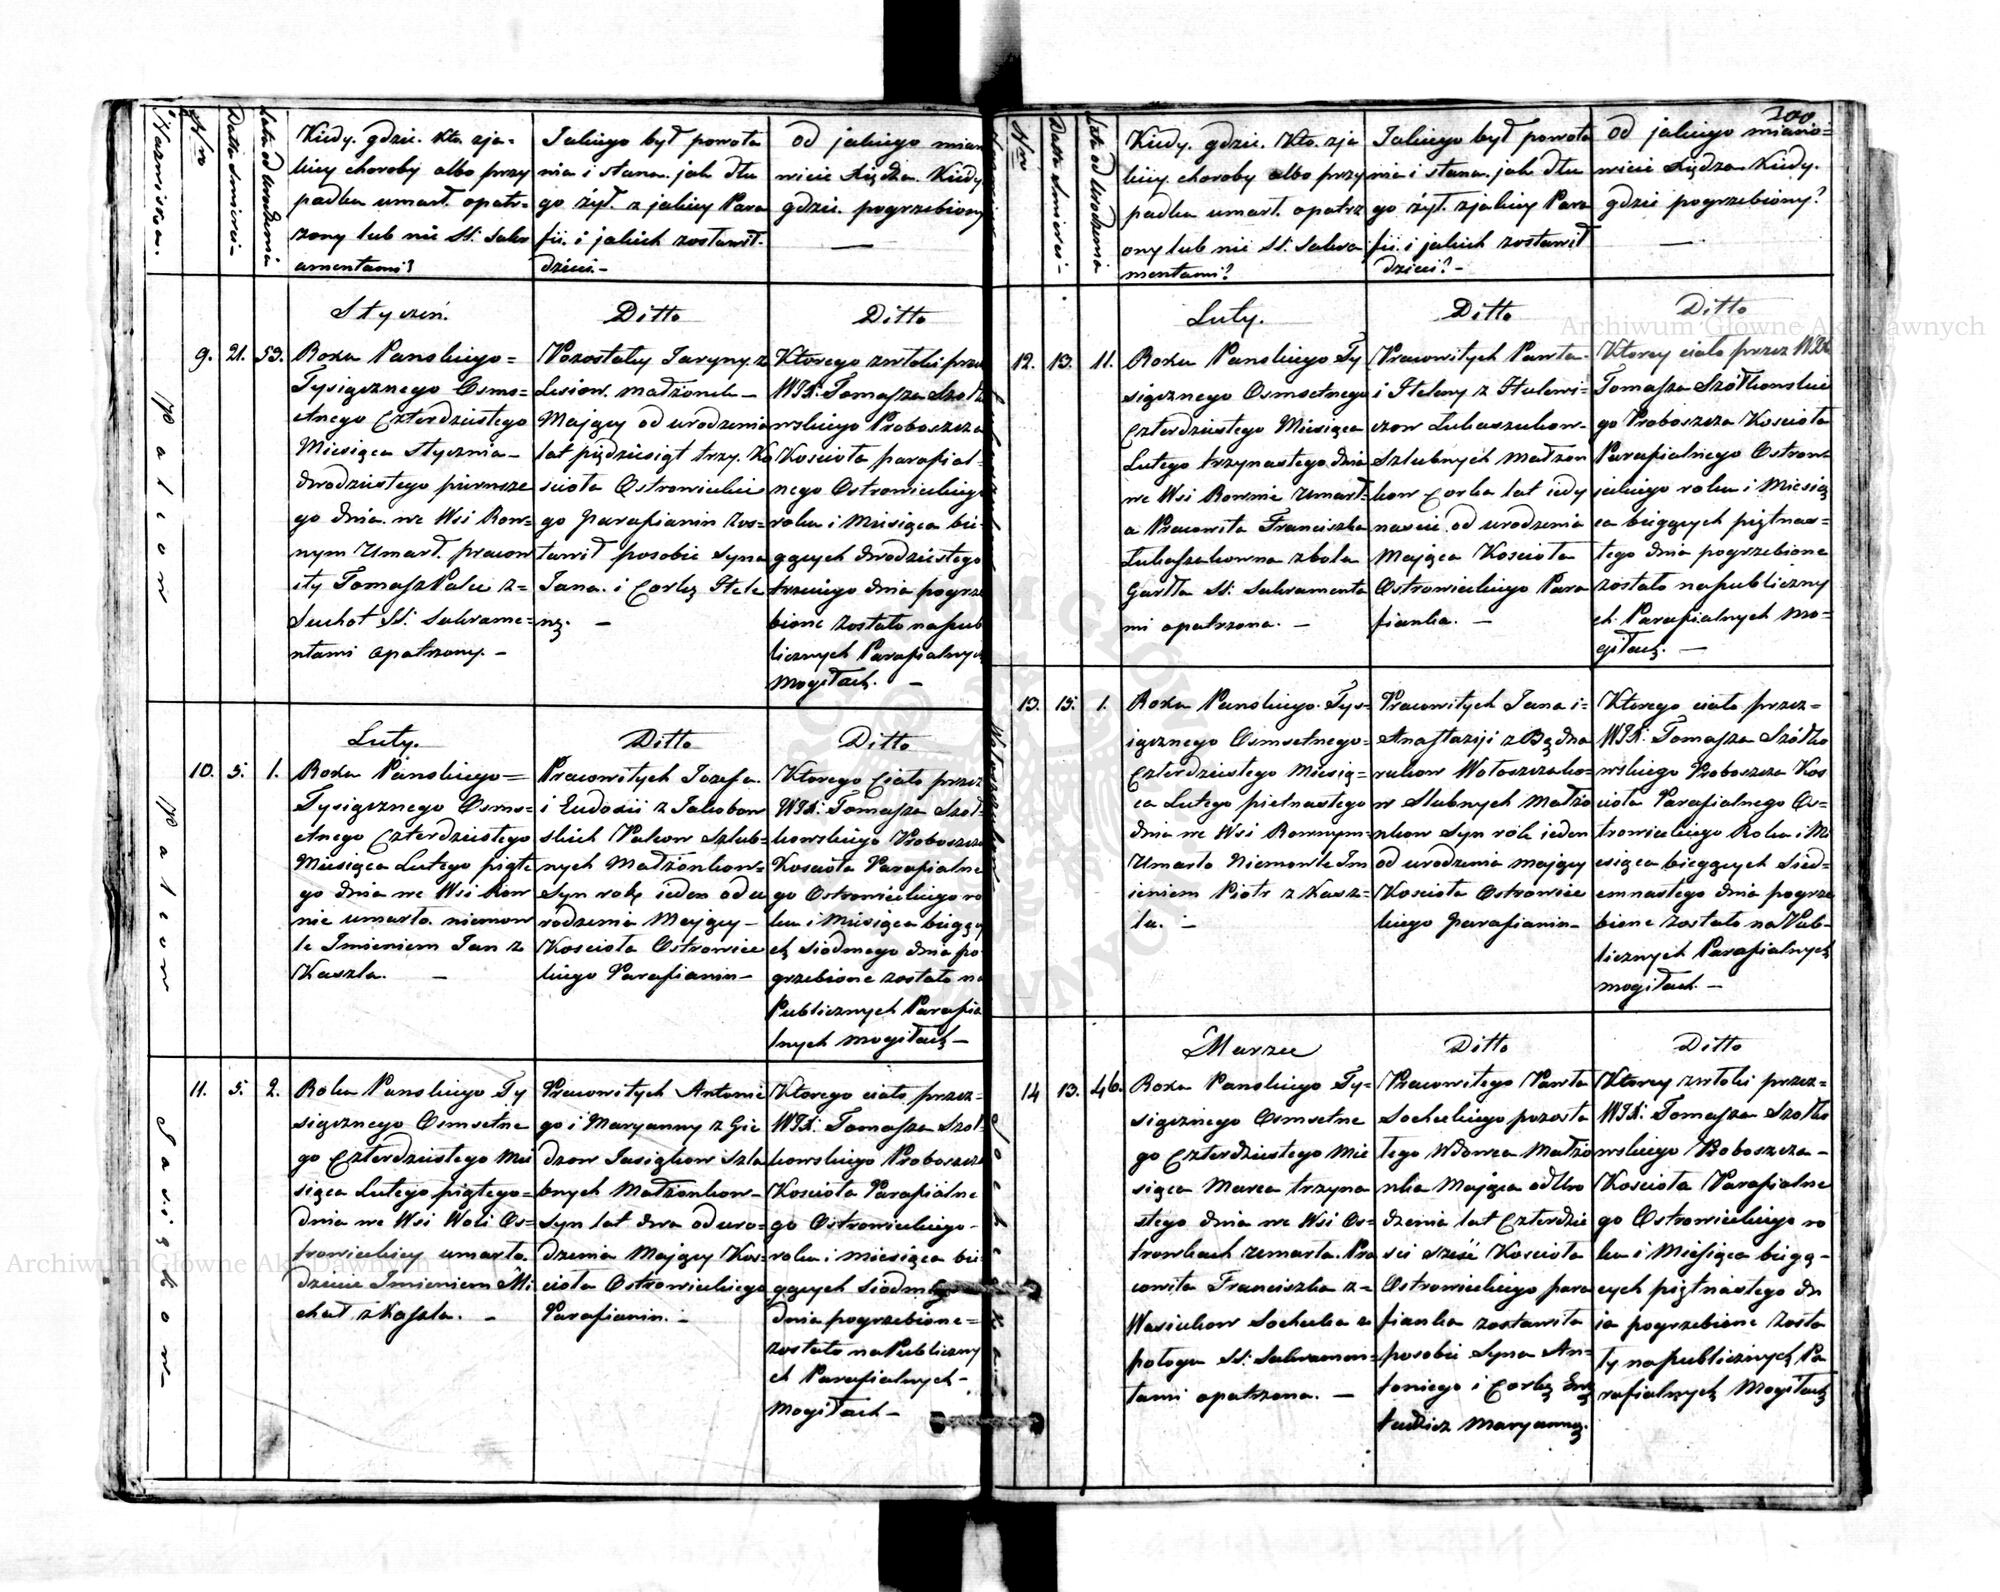 Nazwiska.
Nro
Data śmierci-
Lata od Urodzenia
Kiedy. gdzie. Kto. zja-
kiey choroby albo przy
padku umarł. opatr-
zony lub nie SS: Sakr
amentami?
Jakiego był powoła
nia i stanu. jak dłu
go żył. z jakiey Para
fii. i jakich zostawił-
dzieci.-
Od jakiego mian
wicie Xiędza. Kiedy
gdzie. pogrzebiony
Styczeń.
Ditto
Ditto
Palcow
9. 21. 53.
Roku Pańskiego=
Tysiącznego Osmo=
etnego Czterdziestego
Miesiąca Stycznia-
dwudziestego pierwsze
go dnia we Wsi Row=
nym Umarł. pracow
ity Tomasz Palec z=
Suchot SS: Sakrame=
ntami opatrzony.-
Pozostałey Jaryny. z
Lesiow. małżonek-
Maiący od urodzenia
lat pięćdziesiąt trzy. Ko
ścioła Ostrowieckie
go parafianin zos=
tawił posobie Syna
Jana. i Corkę Hele
nę.-
Ktorego zwłoki prze
WJX: Tomasza Szołk
owskiego Proboszcza
Kościoła parafial-
nego Ostrowieckiego
roku i Miesiąca bie=
gących dwudziestego
trzeciego dnia pogrze
bione zostało na pub
licznych Parafialnych
Mogiłach.-
Luty.
Ditto
Ditto
Palcow
10. 5. 1.
Roku Pańskiego=
Tysiącznego Osms=
etnego Czterdziestego
Miesiąca Lutego piąte
go dnia we Wsi Row
nie umarło. niemow
le Imieniem Jan z
Kaszla.-
Pracowitych Jozefa.
i Eudoxii z Jakobow
skich Palcow Szlub=
nych Małżonkow=
Syn rok ieden od u
rodzenia Maiący-
Kościoła Ostrowiec
kiego Parafianin-
Ktorego Ciało przez
WJX: Tomasza Szoł-
kowskiego Proboszcza
Kościoła Parafialne
go Ostrowieckiego ro
ku i Miesiąca biegący
ch Siódmego dnia po
grzebione zostało na
Publicznych Parafia
lnych mogiłach-
Jasiąkow-
11. 5. 2.
Roku Pańskiego Ty
siącznego Osmsetne
go Czterdziestego Mie
siąca Lutego piątego=
dnia we Wsi Woli Os=
trowieckiey umarło.
dziecie Imieniem Mi
chał z Kaszla.-
Pracowitych Antonie
go i Maryanny z Gie
dzow Jasiąkow Szlu
bnych Małżonkow-
Syn lat dwa od uro=
dzenia Maiący Koś=
cioła Ostrowieckiego
Parafianin.-
Ktorego ciało przez-
WJX: Tomasza Szoł-
kowskiego Proboszcza
Kościoła Parafialne
go Ostrowieckiego-
roku i miesiąca bie=
gących Siódmego
dnia pogrzebione=
zostało na Publiczny
ch Parafialnych-
Mogiłach-
200
Nro
Data śmierci-
Lata od Urodzenia
Kiedy. gdzie. Kto. zja
kiey. choroby albo przy
padku umarł. opatrz
ony lub nie SS: Sakra
mentami?
Jakiego był powoła
nia i stanu. jak dłu
go żył. zjakiey Para
fii. i jakich zostawił
dzieci?-
Od jakiego miano=
wicie Xiędza. Kiedy.
gdzie pogrzebiony?
Luty.
Ditto
Ditto
12. 13. 11.
Roku Pańskiego Ty
siącznego Osmsetnego
Czterdziestego Miesiąca
Lutego trzynastego dnia
we Wsi Rownie Umarł=
a Pracowita Franciszka
Łukaszukowna z bolu
Gardła SS: Sakramenta
mi opatrzona.-
Pracowitych Pawła-
i Heleny z Hulewi=
czow Łukaszukow-
Szlubnych Małżon
kow Corka lat iedy
naście od urodzenia
Maiąca Kościoła
Ostrowieckiego Para
fianka.-
Ktorey ciało przez WJX:
Tomasza Szółkowskie
go Proboszcza Kościoła
Parafialnego Ostrow
ieckiego roku i Miesią
ca biegących piętnas=
tego dnia pogrzebione
zostało na publiczny
ch Parafialnych Mo=
giłach.-
Wołoszukow
13. 15. 1.
Roku Pańskiego. Tys=
iącznego Osmsetnego=
Czterdziestego Miesią=
ca Lutego pietnastego
dnia we Wsi Rownym=
Umarło Niemowle Im
ieniem Piotr z Kasz=
lu.-
Pracowitych Jana i=
Anastazyi z Bedna
rukow Wołoszuko=
w Slubnych Małżo
nkow Syn rok ieden
od urodzenia maiący
Kościoła Ostrowiec
kiego parafianin-
Ktorego ciało przez=
WJX: Tomasza Szółko
wskiego Proboszcza Koś
cioła Parafialnego Os=
trowieckiego Roku i Mi
esiąca biegących Sied=
emnastego dnia pogrze
bione zostało na Pub-
licznych Parafialnych
mogiłach.-
Marzec
Ditto
Ditto
14 13. 46.
Roku Pańskiego Ty=
siącznego Osmsetne
go Czterdziestego Mie
siąca Marca trzyna
stego dnia we Wsi Os=
trowkach umarła. Pra
cowita Franciszka z=
Wasiukow Sochecka z
połogu SS: Sakramen=
tami opatrzona.-
Pracowitego Pawła
Socheckiego pozosta
łego Wdowca Małżo
nka Maiąca od Uro
dzenia lat Czterdzie
ści sześć Kościoła
Ostrowieckiego para
fianka zostawiła
posobie Syna An=
toniego i Corkę
tudzież Maryannę.
Ktorey zwłoki przez=
WJX: Tomasza Szołko
wskiego Proboszcza-
Kościoła Parafialne
go Ostrowieckiego ro
ku i Miesiąca biegą-
cych piętnastego dn
ia pogrzebione Zosta
ły na publicznych Pa
rafialnych Mogiłach
Archiwum Główne Akt Dawnych
Archiwum Główne Akt Dawnych